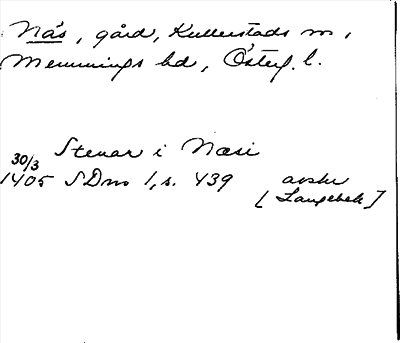 Näs, gård, Kullerstads sn,
Memmings hd, Österg. l.
Stenar i Næsi
30/3
1405 SDns 1, s. 439 avskr
[Langebek]